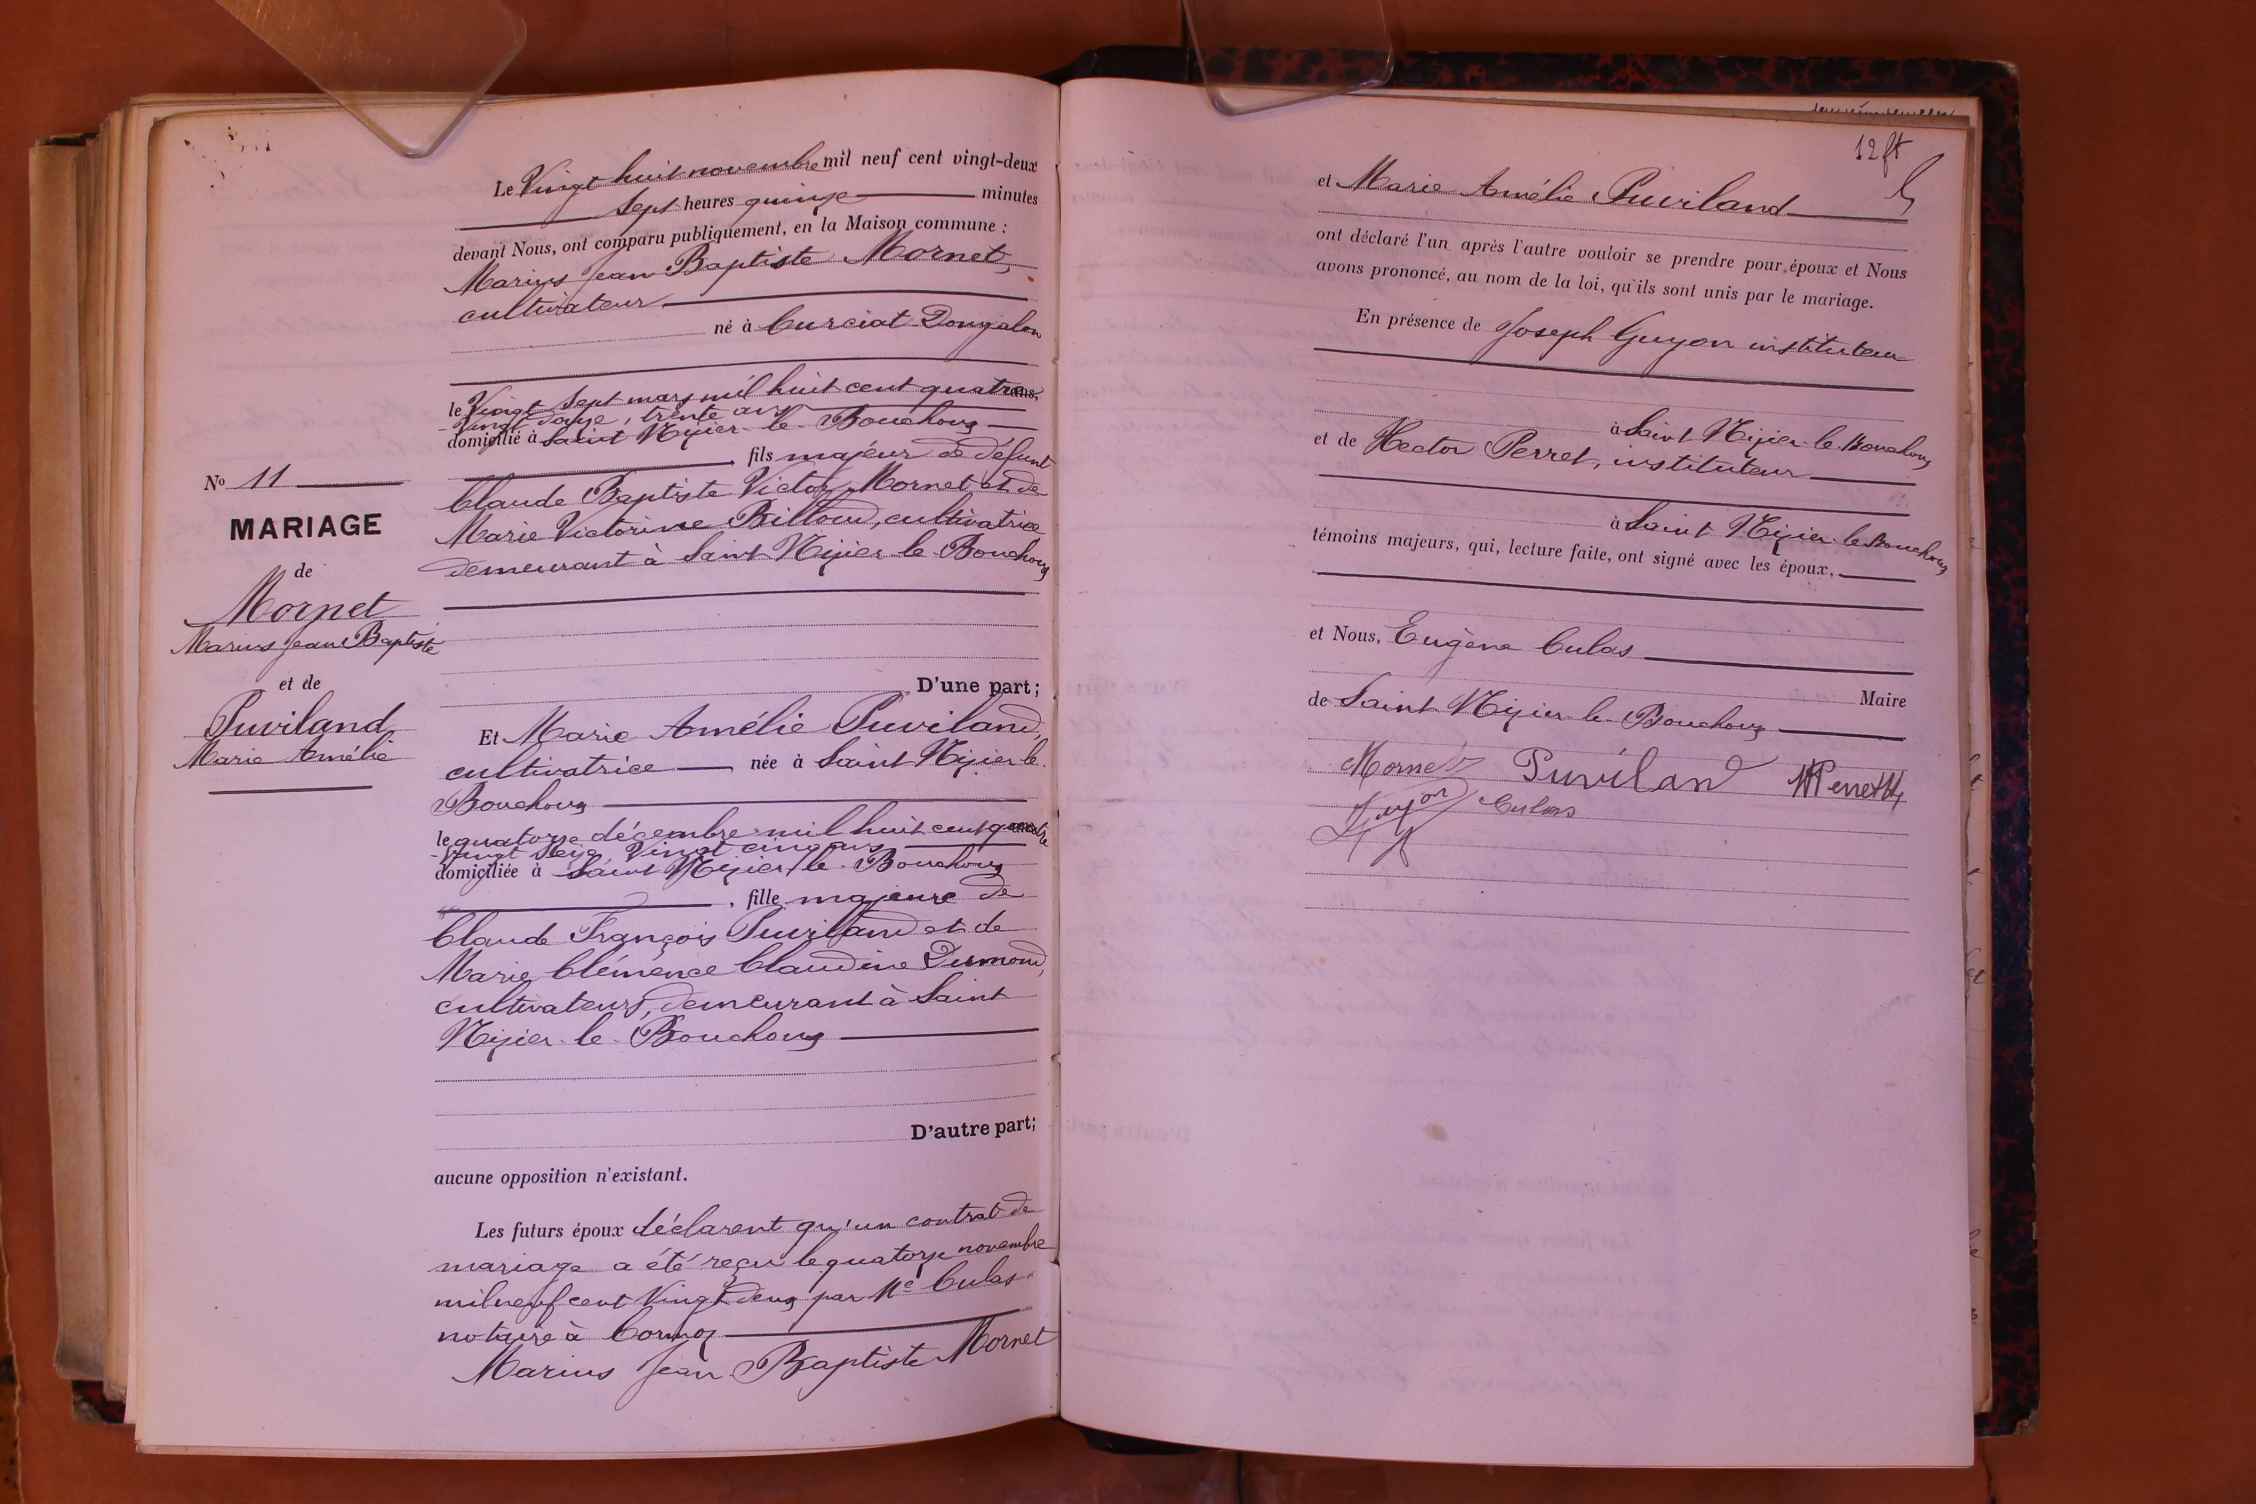 Le Vingt huit novembre mil neuf cent vingt-deux
sept heures quinze minutes
devant Nous, ont comparu publiquement, en la Maison commune :
Marius Jean Baptiste Mornet,
cultivateur
né à Curciat Dongalon
le Vingt sept mars mil huit cent quatre
-vingt douze, trente ans
domicilié à Saint Nizier-le-Bouchoux
, fils majeur de défunt
Claude Baptiste Victor Mornet et de
Marie Victorine Billoud, cultivatrice
demeurant à Saint Nizier-le-Bouchoux
No 11
MARIAGE
de
Mornet
Marius Jean Baptiste
et de
Puviland
Marie Amélie
D'une part;
Et Marie Amélie Puviland,
cultivatrice née à Saint Nizier-le-
Bouchoux
le quatorze décembre mil huit cent quatre
-vingt seize, Vingt cinq ans
domiciliée à Saint Nizier-le-Bouchoux
, fille majeure de
Claude François Puviland et de
Marie Clémence Claudine Dumond,
cultivateurs, demeurant à Saint
Nizier-le-Bouchoux
D'autre part;
aucune opposition n'existant.
Les futurs époux déclarent qu'un contrat de
mariage a été reçu le quatorze novembre
mil neuf cent vingt deux par Me Culas
notaire à Cormoz
Marius Jean Baptiste Mornet
12 ft
et Marie Amélie Puviland
ont déclaré l'un après l'autre vouloir se prendre pour époux et Nous
avons prononcé, au nom de la loi, qu'ils sont unis par le mariage.
En présence de Joseph Guyon instituteur
à Saint Nizier-le-Bouchoux
et de Hector Perret, instituteur
à Saint Nizier-le-Bouchoux
témoins majeurs, qui, lecture faite, ont signé avec les époux,
et Nous, Eugène Culas
Maire
de Saint Nizier-le-Bouchoux
Mornet Puviland HPerret
Guyon Culas